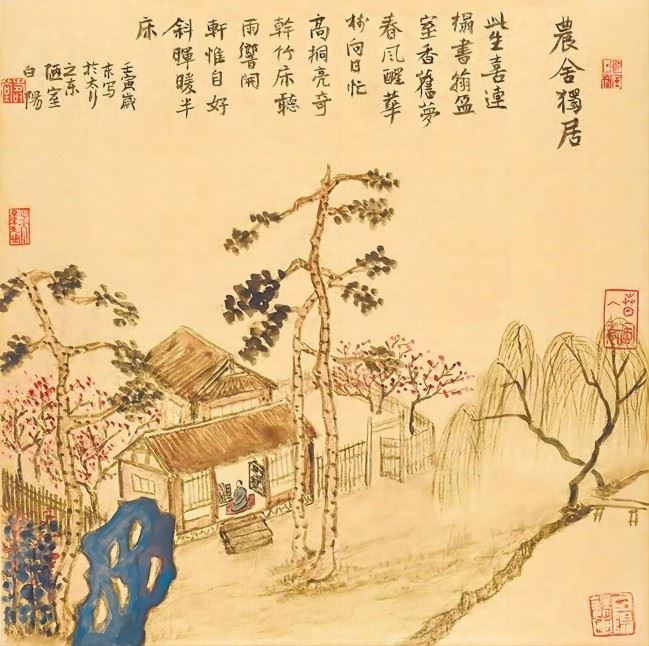 農舍獨居
此生喜連
榻書翰盈
室香舊夢
春風醒華
向日忙
高桐亮奇
幹竹床聽
雨響閑
軒惟自好
斜暉暖半
床
壬寅歲
末写
於太行
之东
陋室
白陽